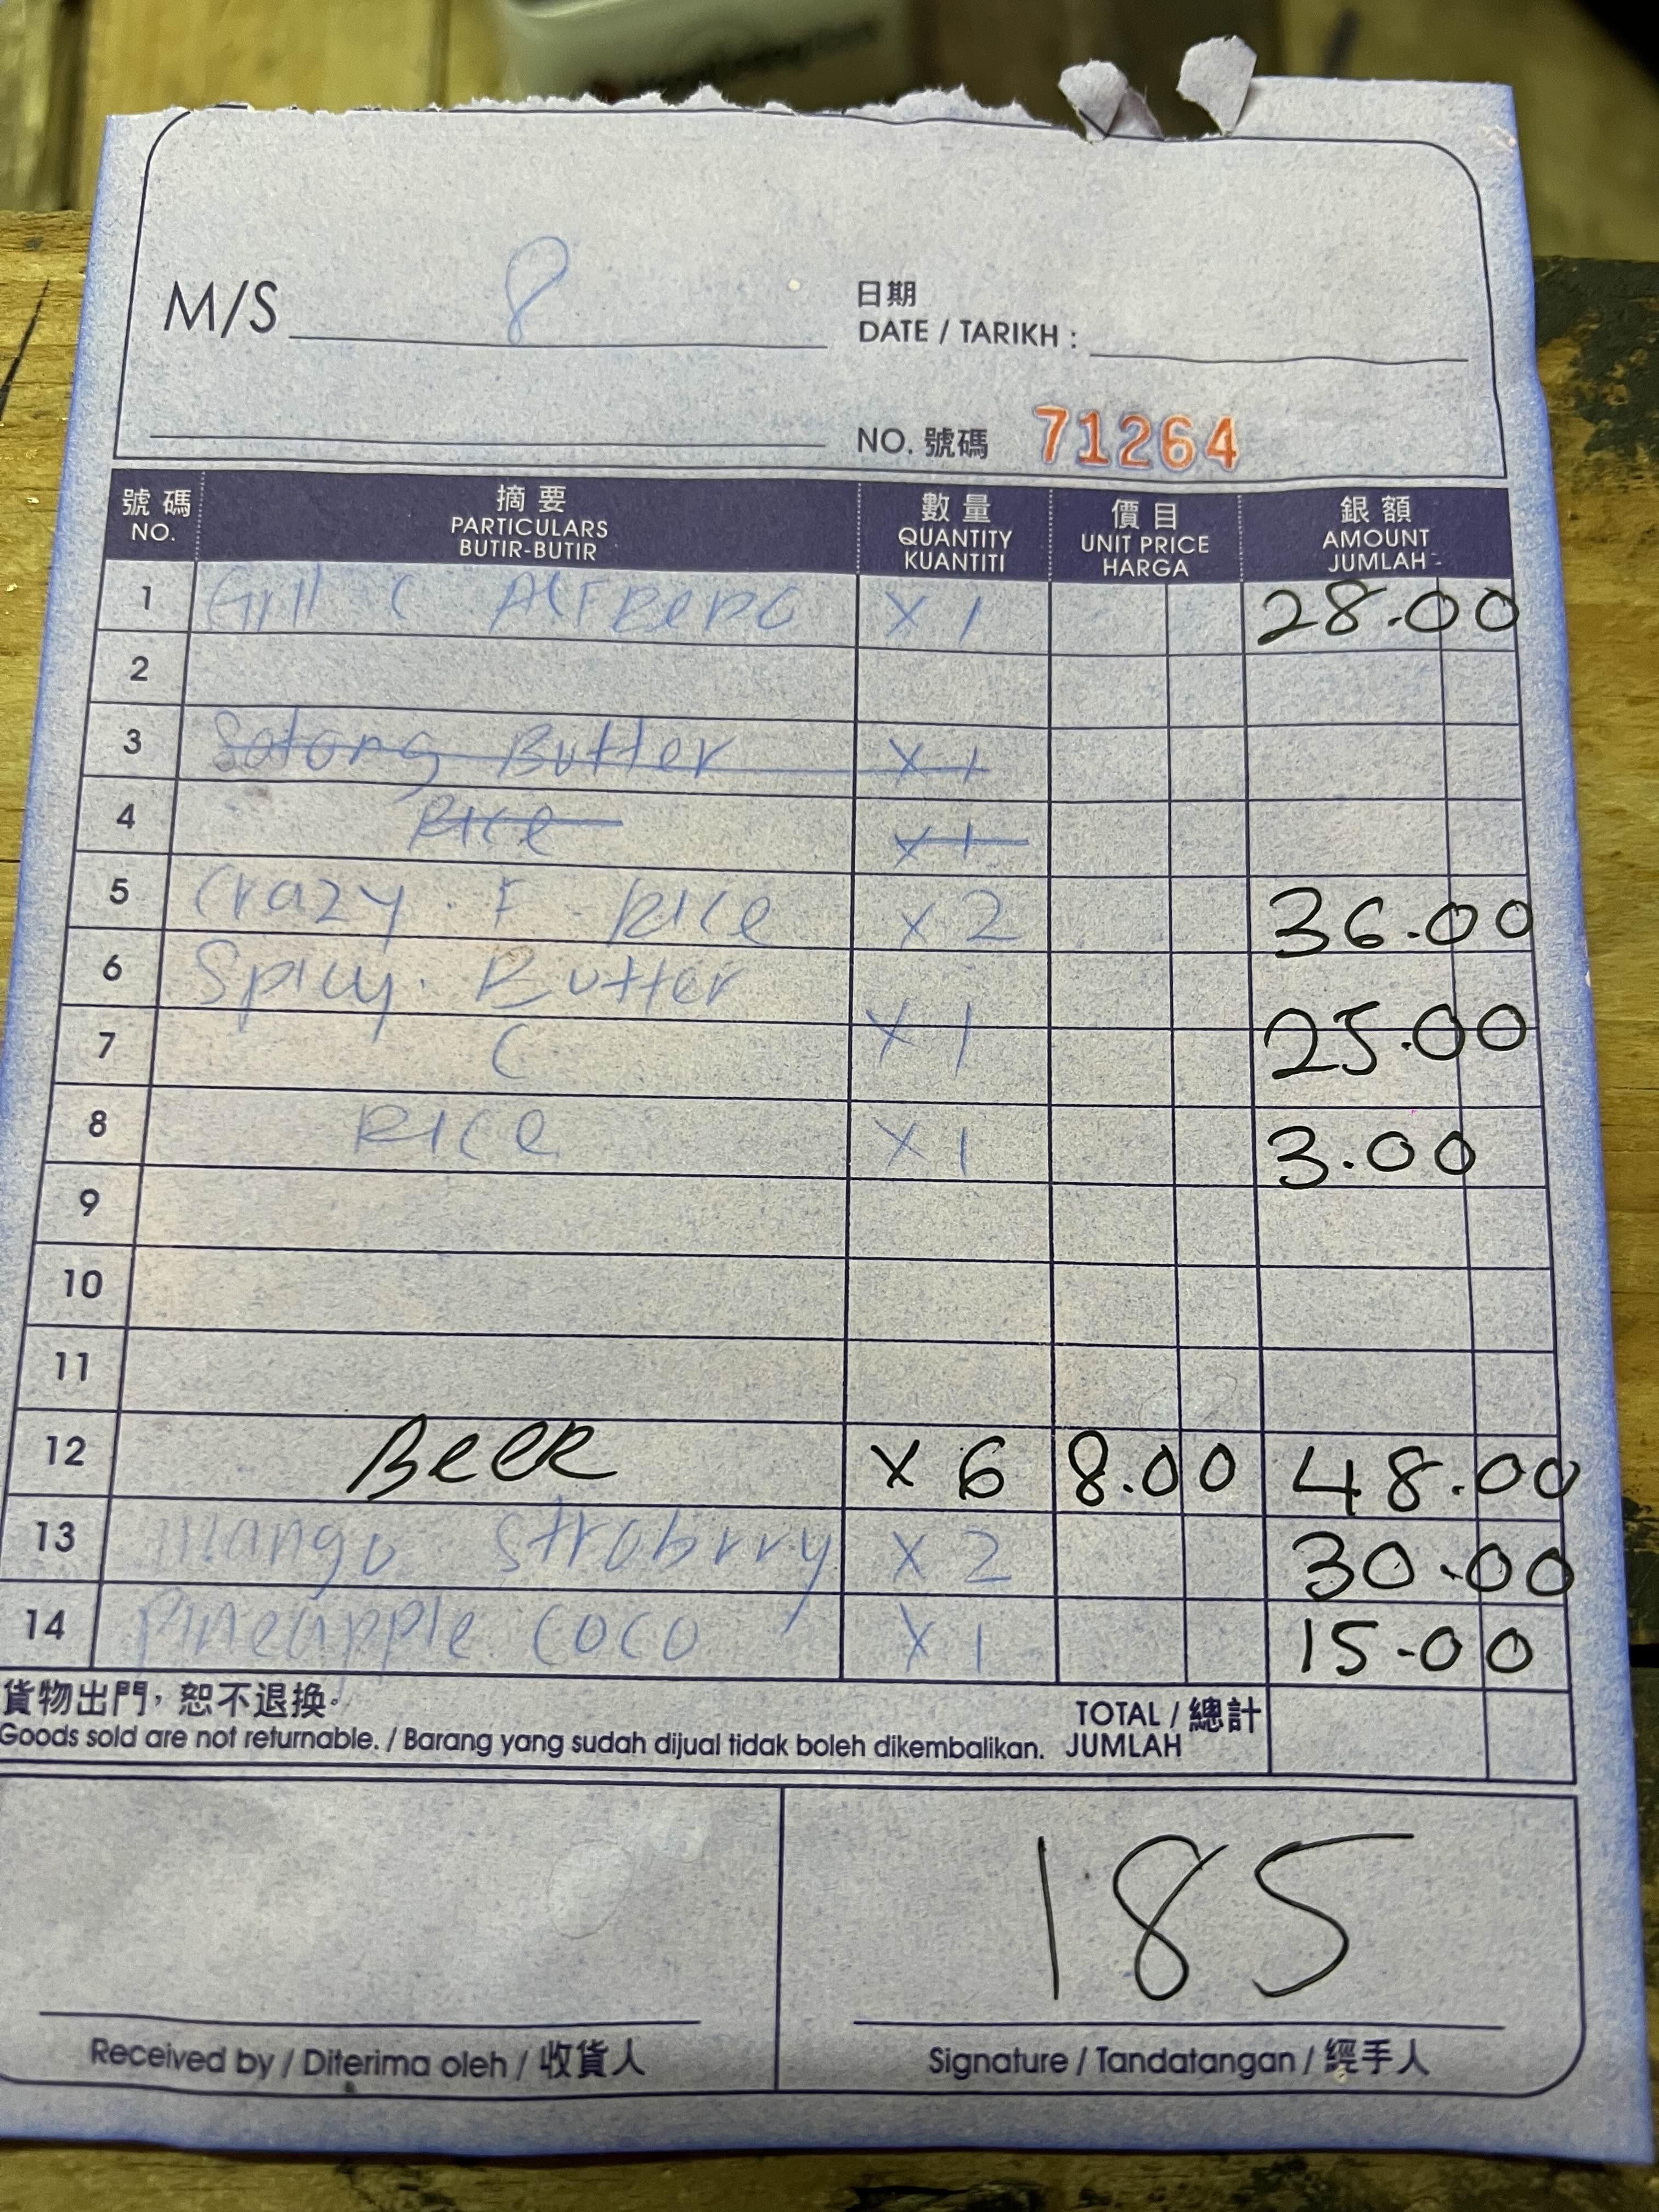 M/S 8
日期
DATE / TARIKH :
NO. 號碼 71264
號碼 摘要 數量 價目 銀額
NO. PARTICULARS QUANTITY UNIT PRICE AMOUNT
BUTIR-BUTIR KUANTITI HARGA JUMLAH
1 Grill C Alfredo x 1 28.00
2
3 Sotong Butter x 1
4 Rice x 1
5 Crazy. F. Rice x 2 36.00
6 Spicy. Butter
7 C x 1 25.00
8 Rice x 1 3.00
9
10
11
12 Beer x 6 8.00 48.00
13 Mango strobrry x 2 30.00
14 Pineapple coco x 1 15.00
貨物出門，恕不退換。 TOTAL / 總計
Goods sold are not returnable. / Barang yang sudah dijual tidak boleh dikembalikan. JUMLAH
185
Received by / Diterima oleh / 收貨人 Signature / Tandatangan / 經手人